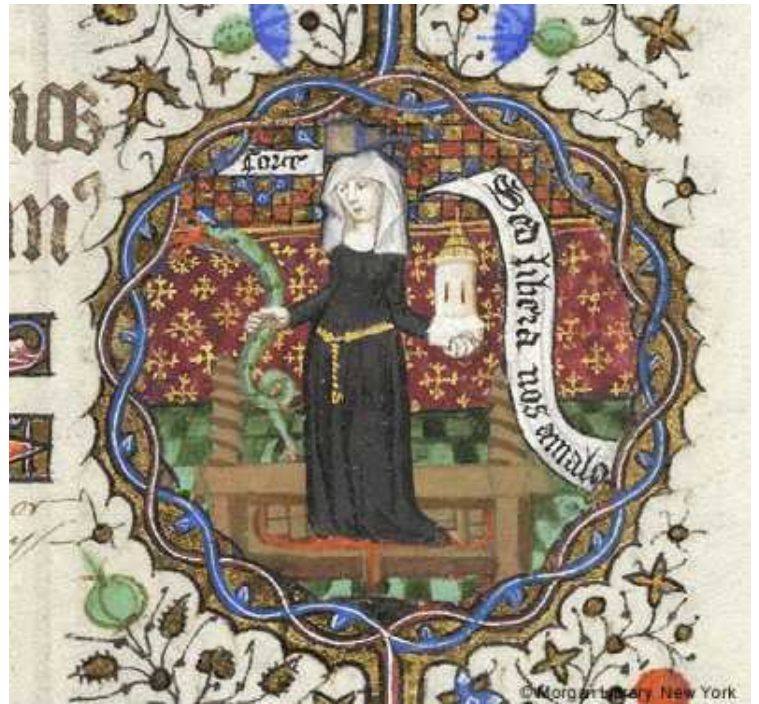 force
Sed libera nos amalo
© Morgan Library, New York